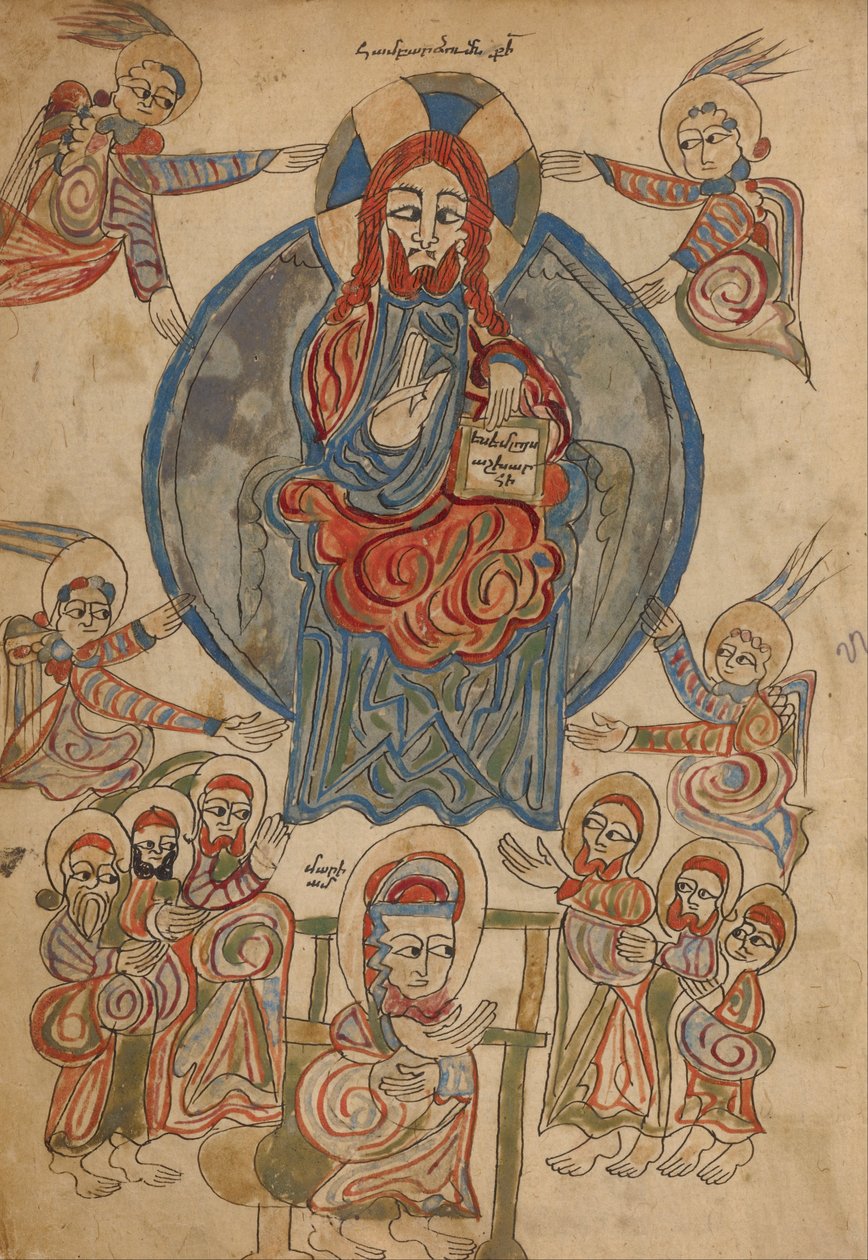 Համբարձումն քի
եսեմլոյս
աշխար
հի
մարի
ամ